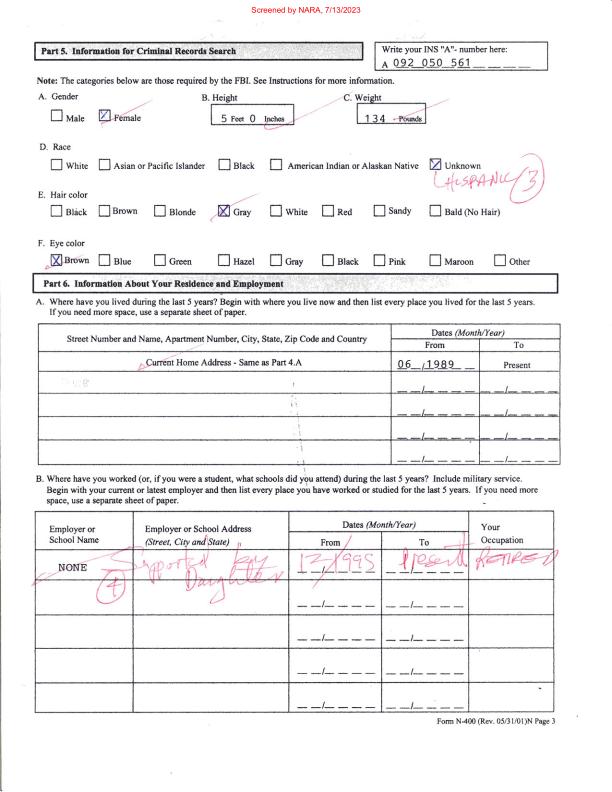 Screened by NARA, 7/13/2023
Part 5. Information for Criminal Records Search
Write your INS "A"- number here:
A 092 050 561 _ _ _ _
Note: The categories below are those required by the FBI. See Instructions for more information.
A. Gender B. Height C. Weight
Male Female 5 Feet 0 Inches 134 Pounds
D. Race
White Asian or Pacific Islander Black American Indian or Alaskan Native Unknown
(HISPANIC) 3
E. Hair color
Black Brown Blonde Gray White Red Sandy Bald (No Hair)
F. Eye color
Brown Blue Green Hazel Gray Black Pink Maroon Other
Part 6. Information About Your Residence and Employment
A. Where have you lived during the last 5 years? Begin with where you live now and then list every place you lived for the last 5 years.
If you need more space, use a separate sheet of paper.
Street Number and Name, Apartment Number, City, State, Zip Code and Country
Dates (Month/Year)
From To
Current Home Address - Same as Part 4.A 06/1989 Present
_ _/_ _ _ _ _ _/_ _ _ _
_ _/_ _ _ _ _ _/_ _ _ _
_ _/_ _ _ _ _ _/_ _ _ _
_ _/_ _ _ _ _ _/_ _ _ _
B. Where have you worked (or, if you were a student, what schools did you attend) during the last 5 years? Include military service.
Begin with your current or latest employer and then list every place you have worked or studied for the last 5 years. If you need more
space, use a separate sheet of paper.
Employer or School Name
Employer or School Address (Street, City and State)
Dates (Month/Year)
From To
Your Occupation
NONE Supported by Daughter 12/1995 Present RETIRED
4
_ _/_ _ _ _ _ _/_ _ _ _
_ _/_ _ _ _ _ _/_ _ _ _
_ _/_ _ _ _ _ _/_ _ _ _
_ _/_ _ _ _ _ _/_ _ _ _
Form N-400 (Rev. 05/31/01)N Page 3